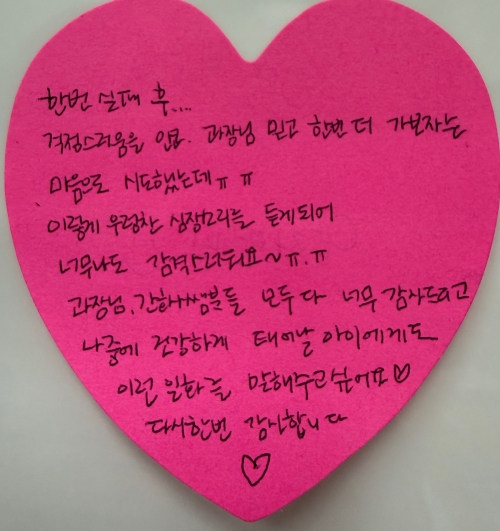 한번 실패 후...
걱정스러움을 안고. 과장님 믿고 한번 더 가보자는
마음으로 시도했는데ㅠㅠ
이렇게 우렁찬 심장소리를 듣게되어
너무나도 감격스러워요~ㅠ.ㅠ
과장님, 간호사쌤분들 모두 다 너무 감사드리고
나중에 건강하게 태어날 아이에게도
이런 일화를 말해주고싶어요♡
다시한번 감사합니다
♡